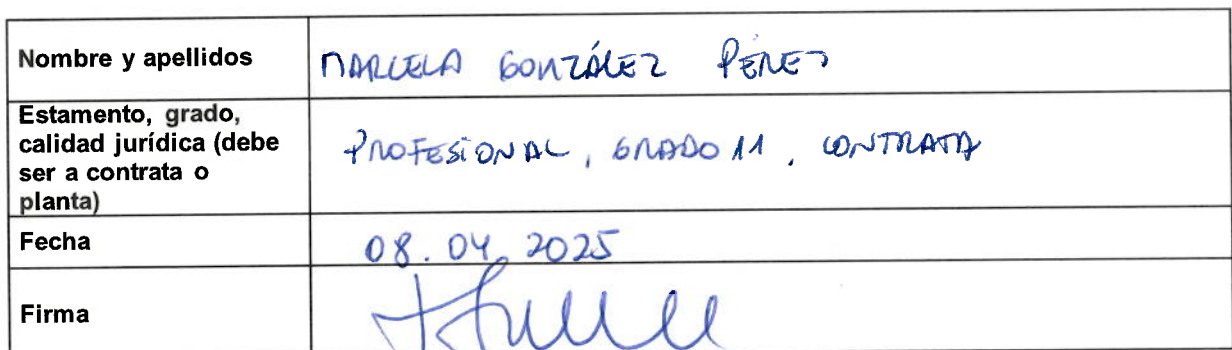 Nombre y apellidos MARCELA GONZÁLEZ PÉREZ
Estamento, grado,
calidad jurídica (debe
ser a contrata o
planta)
PROFESIONAL, GRADO 11, CONTRATA
Fecha 08.04.2025
Firma